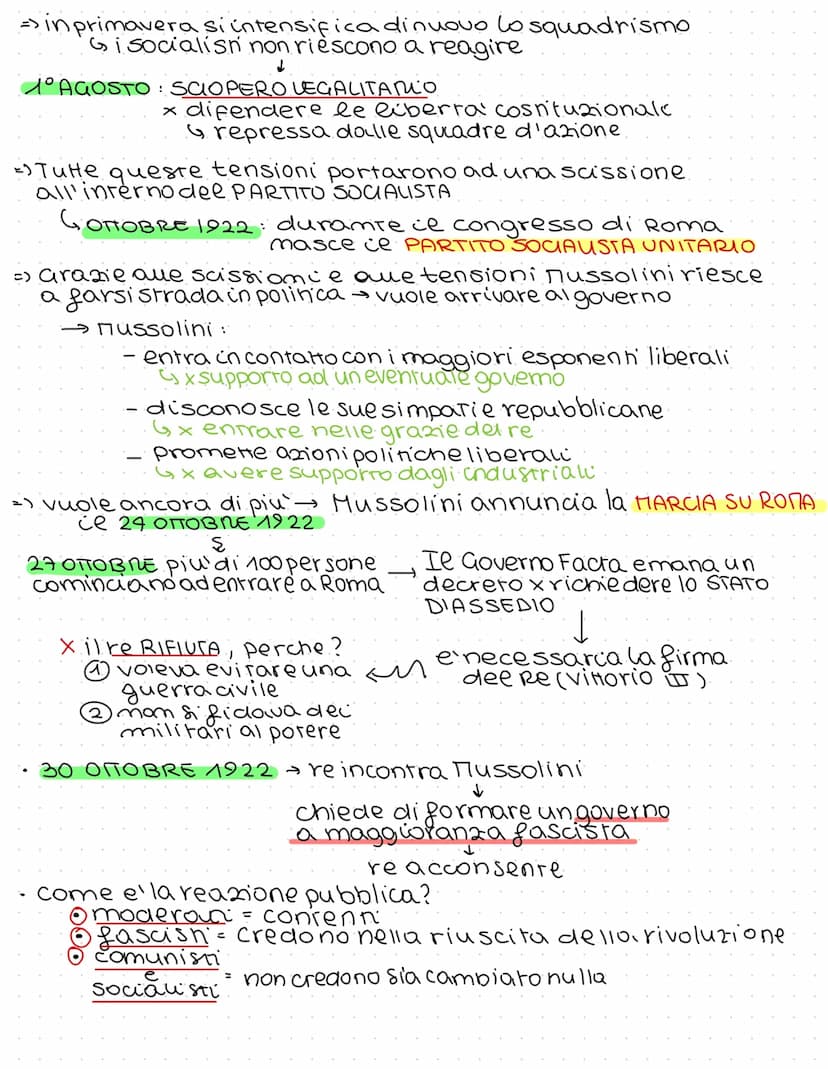 => in primavera si intensifica di nuovo lo squadrismo
↳ i socialisti non riescono a reagire
↓
1° AGOSTO : SCIOPERO LEGALITARIO
x difendere le libertà costituzionale
↳ repressa dalle squadre d'azione
=> Tutte queste tensioni portarono ad una scissione
all'interno del PARTITO SOCIALISTA
↳ OTTOBRE 1922 : durante il congresso di Roma
nasce il PARTITO SOCIALISTA UNITARIO
=> Grazie alle scissioni e alle tensioni Mussolini riesce
a farsi strada in politica → vuole arrivare al governo
→ Mussolini :
- entra in contatto con i maggiori esponenti liberali
↳ x supporto ad un eventuale governo
- disconosce le sue simpatie repubblicane
↳ x entrare nelle grazie del re
- promette azioni politiche liberali
↳ x avere supporto dagli industriali
=> vuole ancora di più → Mussolini annuncia la MARCIA SU ROMA
il 24 OTTOBRE 1922
27 OTTOBRE più di 100 persone → Il Governo Facta emana un
cominciano ad entrare a Roma decreto x richiedere lo STATO
D'ASSEDIO
↓
x il re RIFIUTA, perche? e' necessaria la firma
① voleva evitare una del RE (Vittorio III)
guerra civile
② non si fidava dei
militari al potere
• 30 OTTOBRE 1922 → re incontra Mussolini
↓
chiede di formare un governo
a maggioranza fascista
↓
re acconsente
• come e' la reazione pubblica?
moderati = contenti
fascisti = credono nella riuscita della rivoluzione
comunisti
e
socialisti = non credono sia cambiato nulla